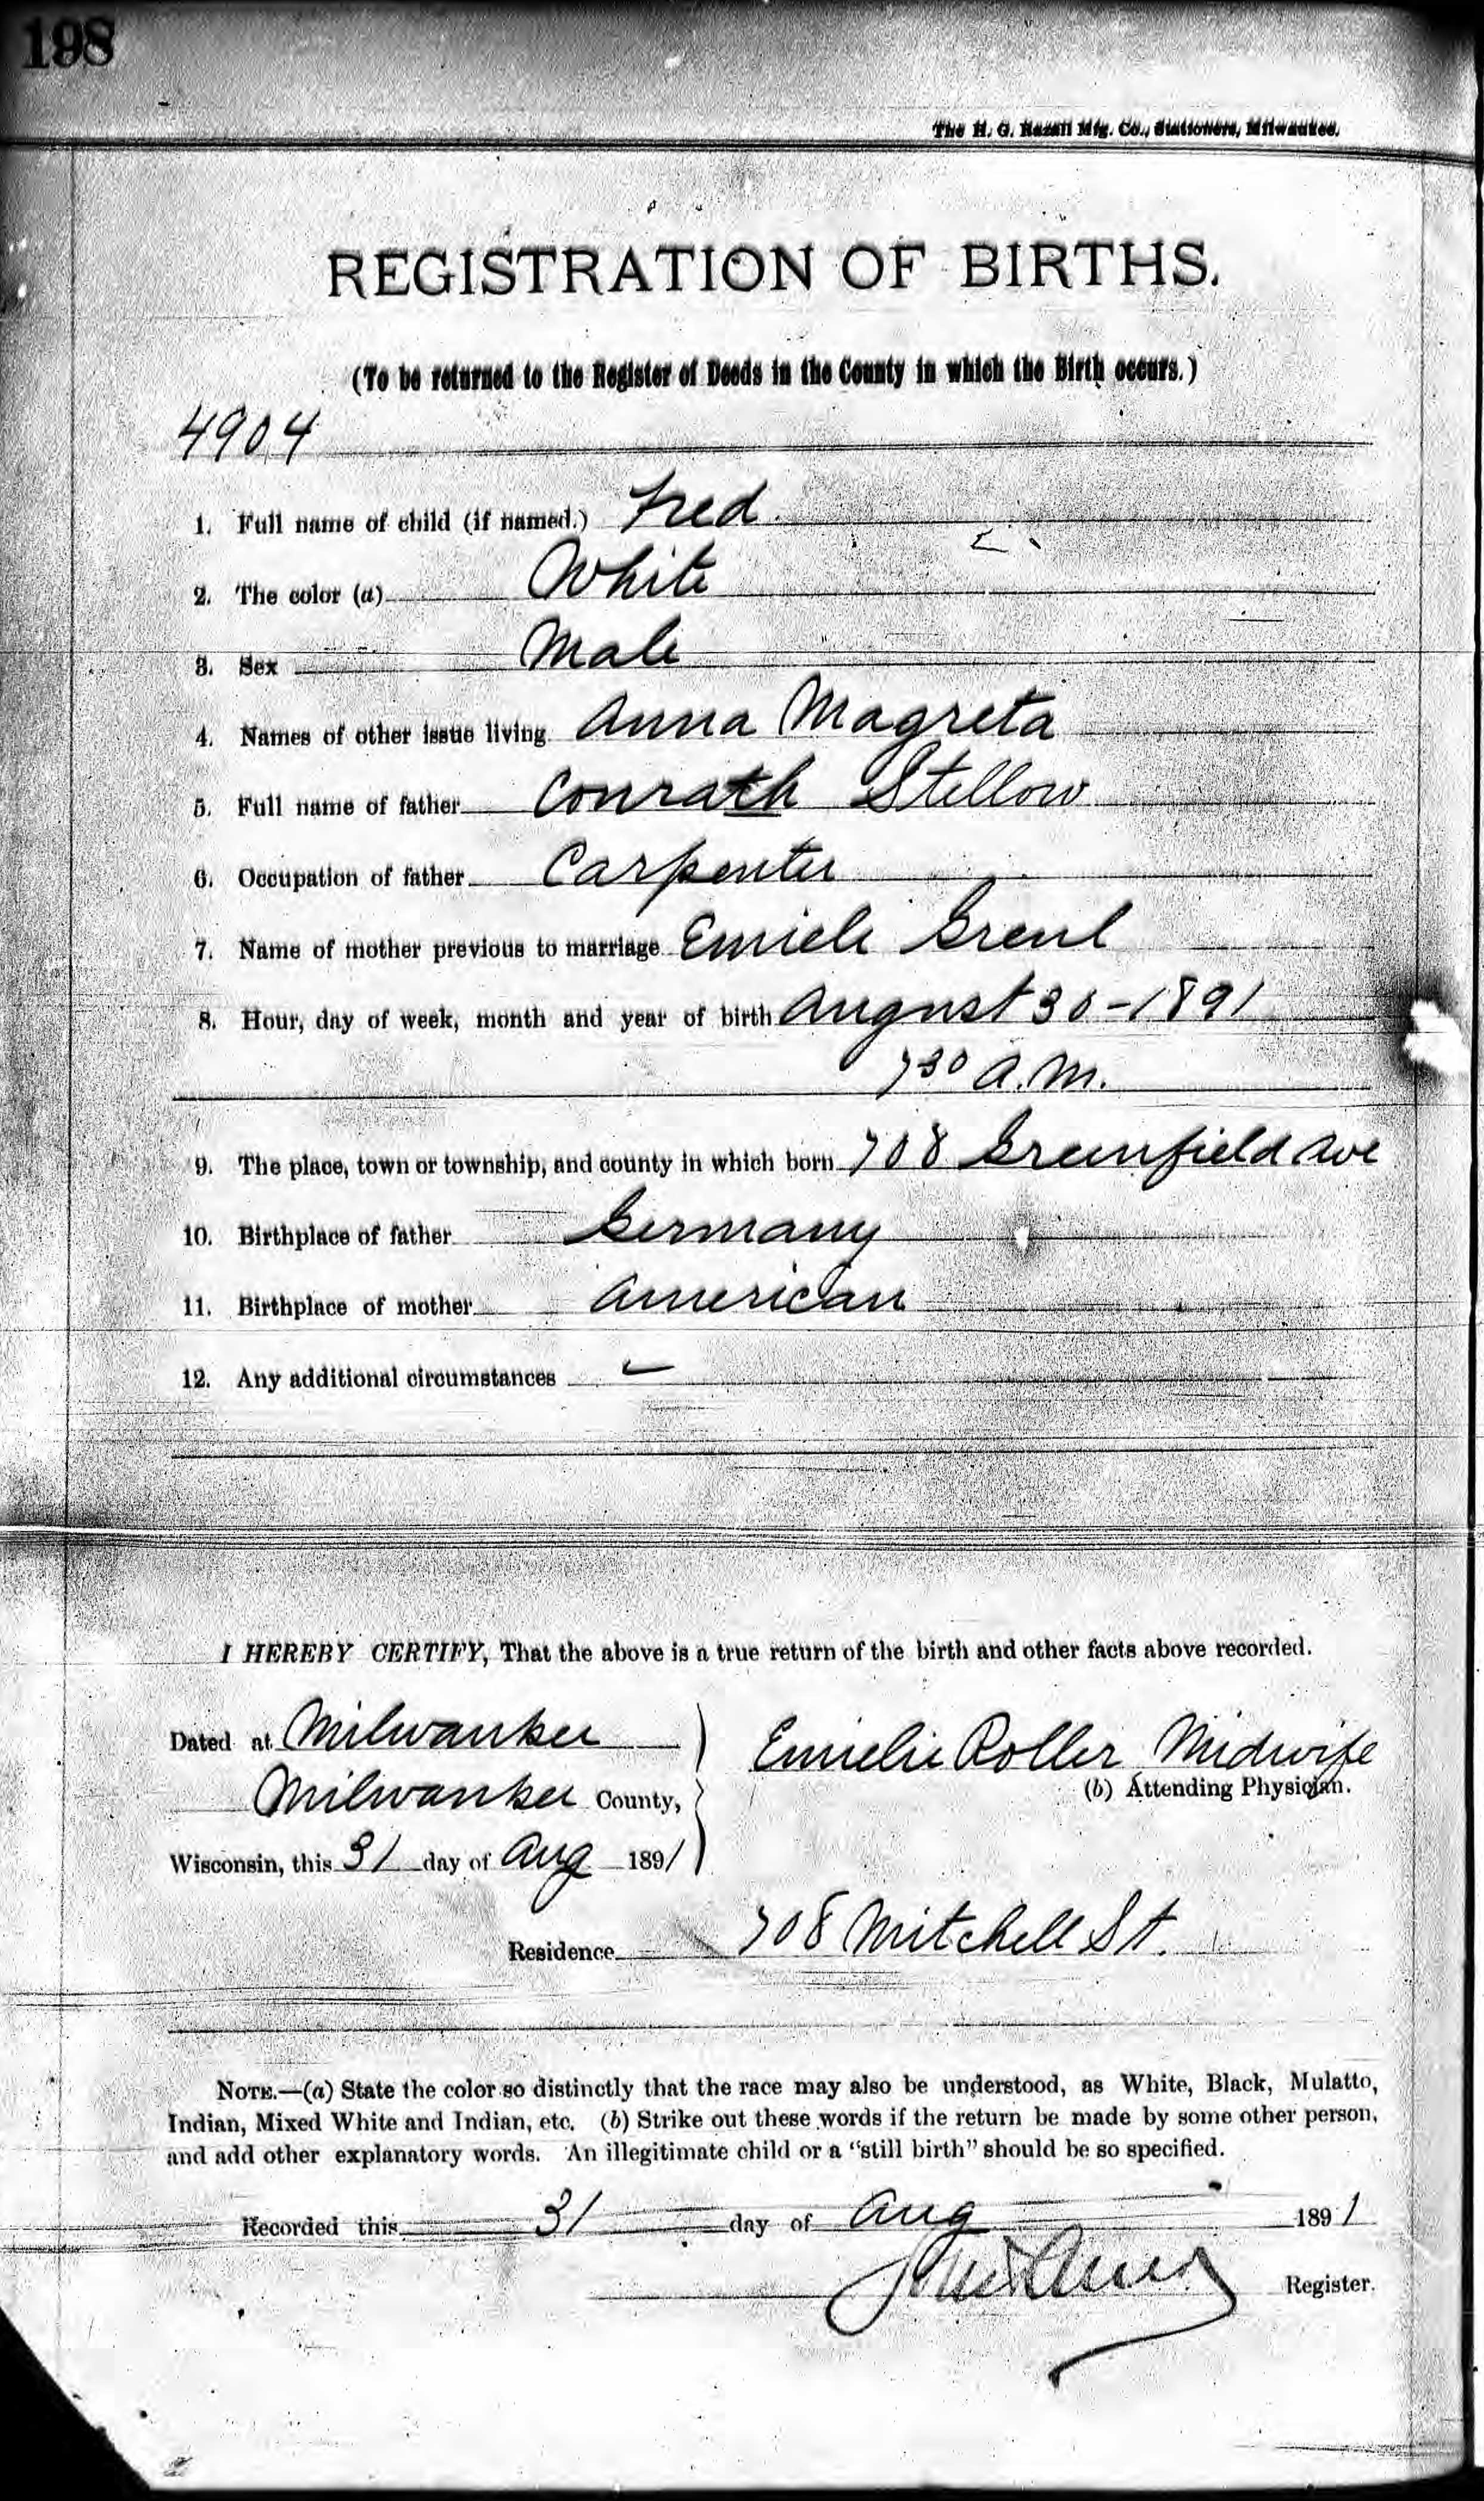 198
The H. G. Razall Mfg. Co., Stationers, Milwaukee.
REGISTRATION OF BIRTHS.
(To be returned to the Register of Deeds in the County in which the Birth occurs.)
4904
1. Full name of child (if named.) Fred.
2. The color (a) White
3. Sex Male
4. Names of other issue living Anna Magreta
5. Full name of father Conrath Stellow
6. Occupation of father Carpenter
7. Name of mother previous to marriage
8. Hour, day of week, month and year of birth August 30-1891
7 30 A.M.
9. The place, town or township, and county in which born 708 Greenfield Ave
10. Birthplace of father Germany
11. Birthplace of mother American
12. Any additional circumstances –
I HEREBY CERTIFY, That the above is a true return of the birth and other facts above recorded.
Dated at Milwaukee
Emielie Roller Midwife
Milwaukee County,
(b) Attending Physician.
Wisconsin, this 31 day of Aug 1891
Residence 708 Mitchell St.
NOTE.—(a) State the color so distinctly that the race may also be understood, as White, Black, Mulatto,
Indian, Mixed White and Indian, etc. (b) Strike out these words if the return be made by some other person,
and add other explanatory words. An illegitimate child or a "still birth" should be so specified.
Recorded this 31 day of Aug 1891
Register.